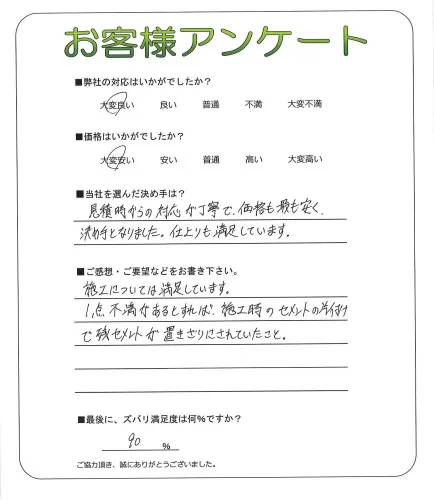 お客様アンケート
■弊社の対応はいかがでしたか?
大変良い 良い 普通 不満 大変不満
■価格はいかがでしたか?
大変安い 安い 普通 高い 大変高い
■当社を選んだ決め手は?
見積時からの対応が丁寧で、価格も最も安く、
決め手となりました。仕上りも満足しています。
■ご感想・ご要望などをお書き下さい。
施工については満足しています。
1点不満があるとすれば、施工時のセメントの片付け
で残セメントが置きざりにされていたこと。
■最後に、ズバリ満足度は何%ですか?
90 %
ご協力頂き、誠にありがとうございました。